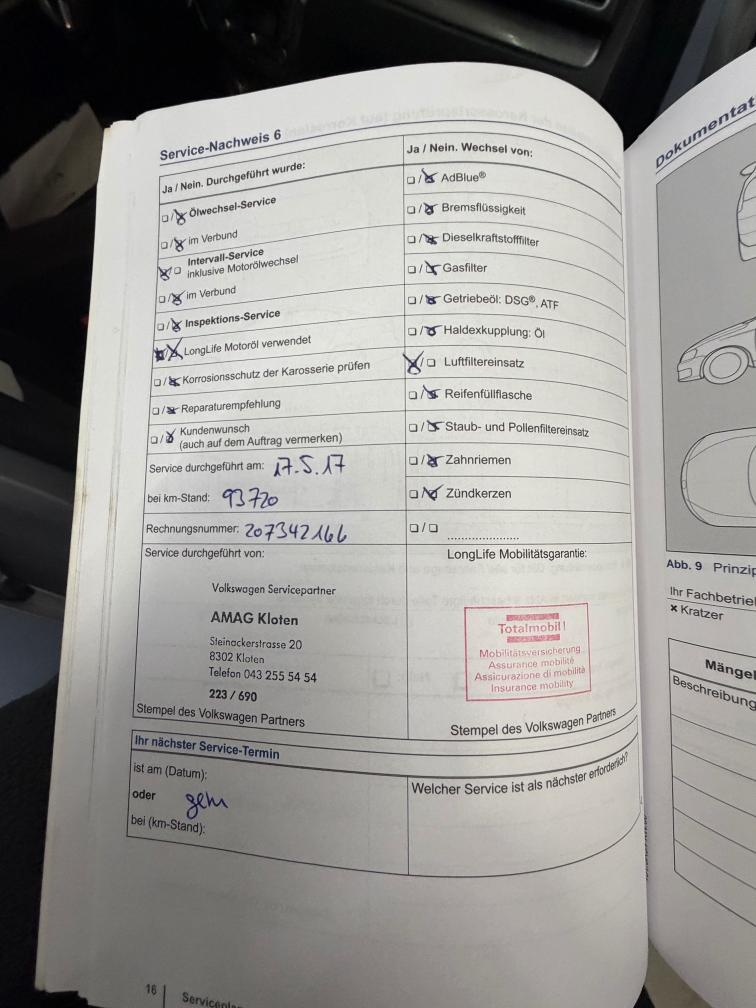 Service-Nachweis 6
Ja / Nein. Durchgeführt wurde:
Ölwechsel-Service
im Verbund
Intervall-Service
inklusive Motorölwechsel
im Verbund
Inspektions-Service
LongLife Motoröl verwendet
Korrosionsschutz der Karosserie prüfen
Reparaturempfehlung
Kundenwunsch
(auch auf dem Auftrag vermerken)
Service durchgeführt am: 17.5.17
bei km-Stand: 93720
Rechnungsnummer: 207342166
Service durchgeführt von:
Volkswagen Servicepartner
AMAG Kloten
Steinackerstrasse 20
8302 Kloten
Telefon 043 255 54 54
223 / 690
Stempel des Volkswagen Partners
Ja / Nein. Wechsel von:
AdBlue®
Bremsflüssigkeit
Dieselkraftstofffilter
Gasfilter
Getriebeöl: DSG®, ATF
Haldexkupplung: Öl
Luftfiltereinsatz
Reifenfüllflasche
Staub- und Pollenfiltereinsatz
Zahnriemen
Zündkerzen
LongLife Mobilitätsgarantie:
Totalmobil!
Mobilitätsversicherung
Assurance mobilité
Assicurazione di mobilità
Insurance mobility
Stempel des Volkswagen Partners
Ihr nächster Service-Termin
ist am (Datum):
oder
bei (km-Stand):
Welcher Service ist als nächster erforderlich?
16
Abb. 9 Prinzip
Ihr Fachbetrie
× Kratzer
Mängel
Beschreibung